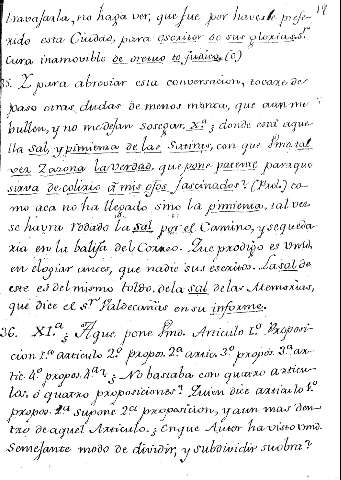 19
travasarla, no haga ver, que fue por haverse prefe-
rido esta Ciudad, para escritor de sus glorias, Sr.
Cura inamovible de oremus te judice. (c)
35. Y para abreviar esta conversacion, tocare de
paso otras dudas de menos monta, que aun me
bullen, y no me dejan sosegar. X.ª ¿donde está aque-
lla sal, y pimienta de las Satiras, con que Pmo. tal
vez zazona la verdad, que pone patente para que
sirva de colirio à mis ojos fascinados? (Prol.) co-
mo aca no ha llegado sino la pimienta, tal vez
se havra rodado la sal por el Camino, y se queda-
ria en la balija del Correo. Que prodigo es Vmd.
en elogiar unos, que nadie sus escritos. La sal de
este es del mismo toldo, de la sal de las Memorias,
que dice el Sr. Valdecañas en su informe.
36. XI.ª ¿A que pone Pmo. Articulo 1.º Proposi-
cion 1.ª articulo 2.º propos. 2.ª artic. 3.º propos. 3.ª ar-
tic. 4.º propos. 4.ª? ¿No bastaba con quatro articu-
los, ó quatro proposiciones? Quien dice articulo 1.º
propos. 1.ª supone 2.ª proposicion, y aun mas den-
tro de aquel Articulo. ¿En que Autor ha visto Vmd.
Semejante modo de dividir, y subdividir su obra?